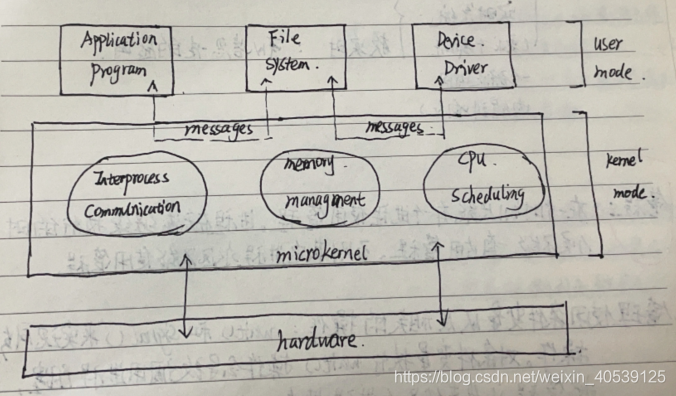 Application
Program
File
System.
Device.
Driver
user
mode.
messages
messages
Interprocess
Commuincation
memory
managment
CPU.
Scheduling
kernel
mode.
microkernel
hardware.
https://blog.csdn.net/weixin_40539125